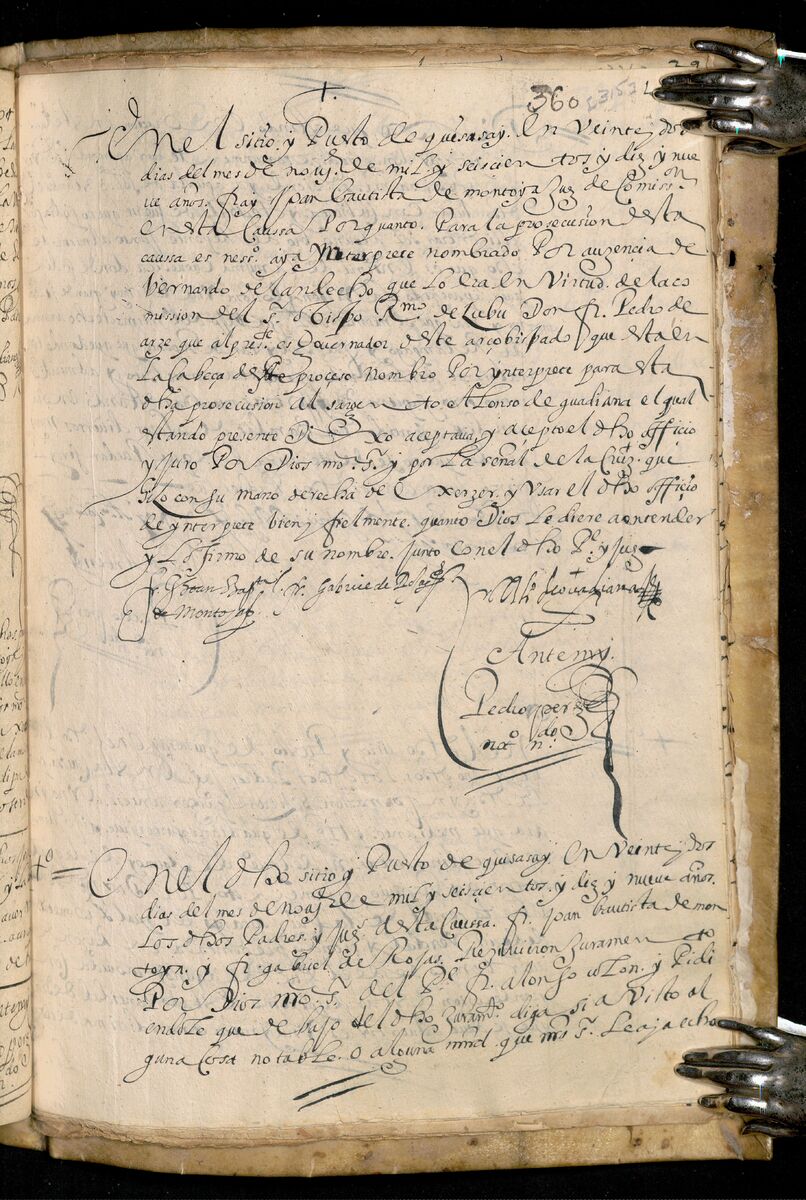 360
29
En el sitio. y Puesto de quisasay. en Veinte y dos
dias del mes de nouj.e de mil y seiscientos. y diez y nue
ue años. fray Joan bautista de montoya Juez de Comiss.n
en esta Caussa Por quanto. Para la prosecusion desta
caussa es ness.o aya ynterprete nombrado Por auzencia de
bernardo de landecho que lo era en Virtud. de la co
mission del S. Obispo R.mo de Zubu Don fr. Pedro de
arze que al pres.te es Governador deste arçobispado que esta en
la Cabeca deste proceso nombro Por ynterprete para esta
dha prosecusion al sargento Alonso de guadiana el qual
estando presente Dixo aceptaua, y acepto el dho officio
y juro Por Dios nro S. y por la señal de la Cruz. que
hizo con su mano derecha de exerzer. y Vsar el dho officio
de ynterprete bien y fielmente. quanto Dios le diere a entender
y lo firmo de su nombre. junto con el dho P.e y juez
fr. Joan Bap.ta fr. Gabriel de Rojas Al.o de guadiana
de Montoya
Ante my.
Pedro perez
not.o n.do
+o = En el dho sitio y Puesto de quisasay en Veinte y dos
dias del mes de nouj.e de mil y seiscientos. y diez y nueue años.
Los dhos Padres. y Juez. desta Caussa. fr. Joan bautista de mon
toya. y fr. gabriel de Rojas. Reciuieron Juramento
Por Dios nro S. del P.e fr. alonso colon. y Pidi
endole que debajo del dho juram.to diga si a Visto al
guna Cosa notable. o alguna mrd. que nro S. le aja echo